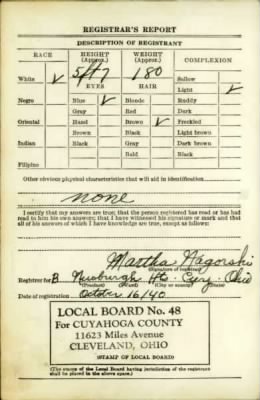 REGISTRAR'S REPORT
DESCRIPTION OF REGISTRANT
RACE HEIGHT (Approx.) WEIGHT (Approx.) COMPLEXION
White ✓ 5 ft 7 180 Sallow
EYES HAIR Light ✓
Negro Blue ✓ Blonde Ruddy
Gray Red Dark
Oriental Hazel Brown ✓ Freckled
Brown Black Light brown
Indian Black Gray Dark brown
Bald Black
Filipino
Other obvious physical characteristics that will aid in identification
none
I certify that my answers are true; that the person registered has read or has had read to him his own answers; that I have witnessed his signature or mark and that all of his answers of which I have knowledge are true, except as follows:
Martha Nagorski
(Signature of registrar)
Registrar for B Newburgh Hts. Cuy. Ohio
(Precinct) (Ward) (City or county) (State)
Date of registration October 16/40
LOCAL BOARD No. 48
For CUYAHOGA COUNTY
11623 Miles Avenue
CLEVELAND, OHIO
(STAMP OF LOCAL BOARD)
(The stamp of the Local Board having jurisdiction of the registrant shall be placed in the above space.)